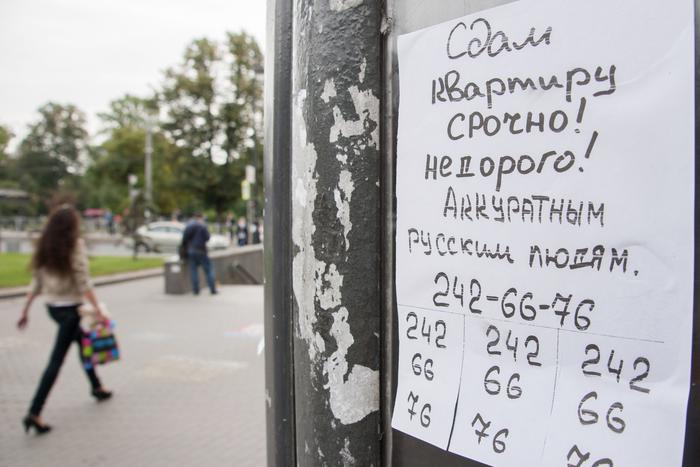 Сдам
квартиру
срочно!
недорого!
Аккуратным
русским людям.
242-66-76
242
66
76
242
66
76
242
66
76